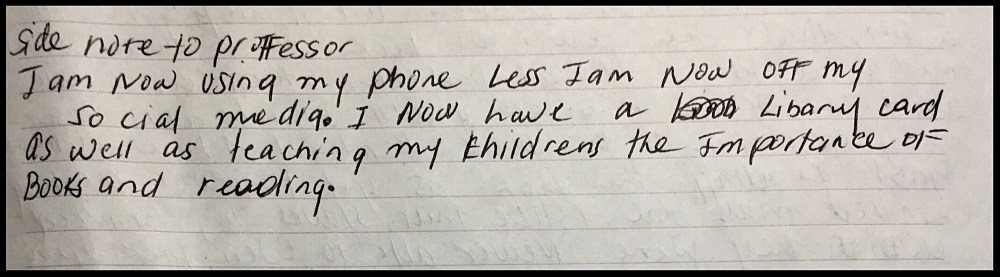 side note to proffessor
I am Now using my phone Less I am Now OFF my
social media. I Now have a Libary card
as well as teaching my Childrens the Importance OF
Books and reading.